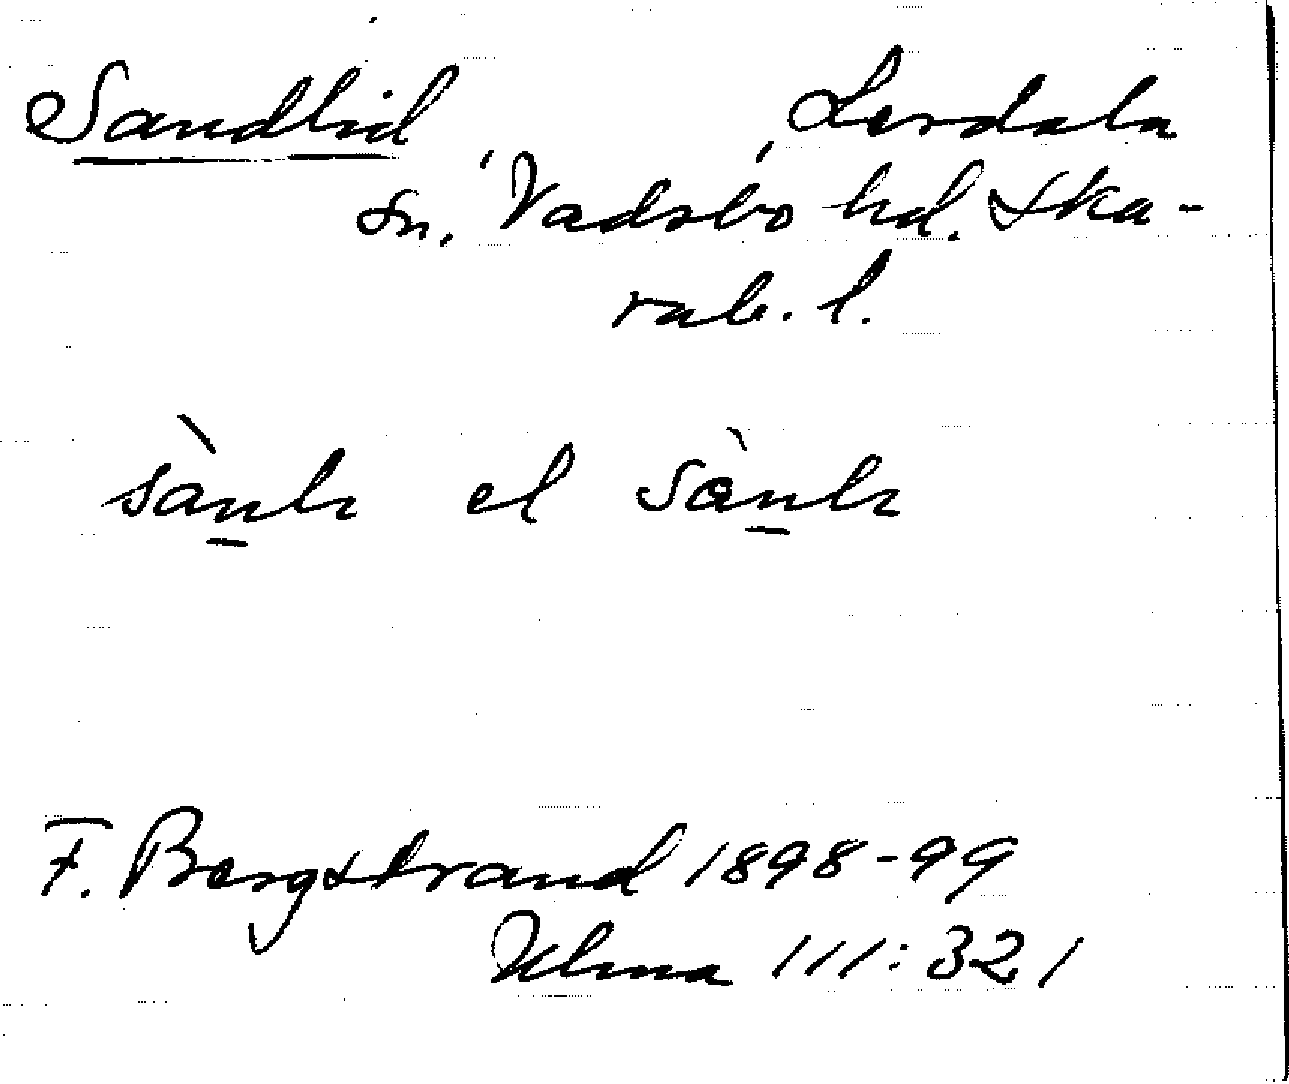 Sandlid Lerdala
sn, Vadsbo hd. Ska-
rab. l.
sànlı el sànlı
F. Bergstrand 1898-99
Ulma 111:321